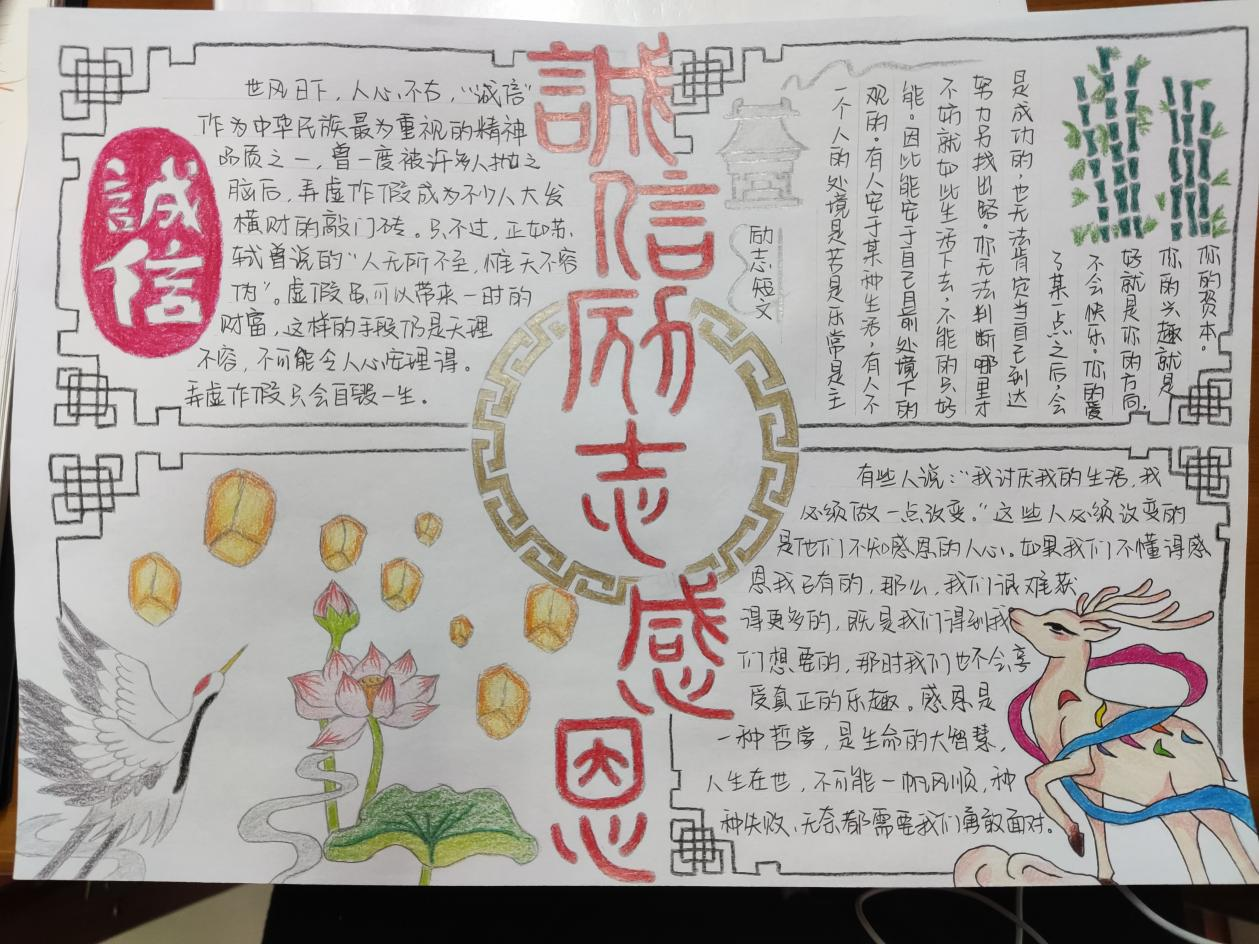 誠信励志感恩
誠信
世风日下，人心不古，“诚信”
作为中华民族最为重视的精神
品质之一，曾一度被许多人抛之
脑后，弄虚作假成为不少人大发
横财的敲门砖。只不过，正如苏
轼曾说的“人无所不至，惟天不容
伪”。虚假虽可以带来一时的
财富，这样的手段仍是天理
不容，不可能令人心安理得。
弄虚作假只会自毁一生。
励志短文
一个人的处境是苦是乐常是主
观的。有人安于某种生活，有人不
能。因此能安于自己目前处境下的
不妨就如此生活下去，不能的只好
努力另找出路。你无法判断哪里才
是成功的，也无法肯定当自己到达
了某一点之后，会
不会快乐。你的爱
好就是你的方向，
你的兴趣就是
你的资本。
有些人说：“我讨厌我的生活，我
必须做一点改变。”这些人必须改变的
是他们不知感恩的人心。如果我们不懂得感
恩我已有的，那么，我们很难获
得更多的，既是我们得到我
们想要的，那时我们也不会享
受真正的乐趣。感恩是
一种哲学，是生命的大智慧，
人生在世，不可能一帆风顺，种
种失败、无奈都需要我们勇敢面对。